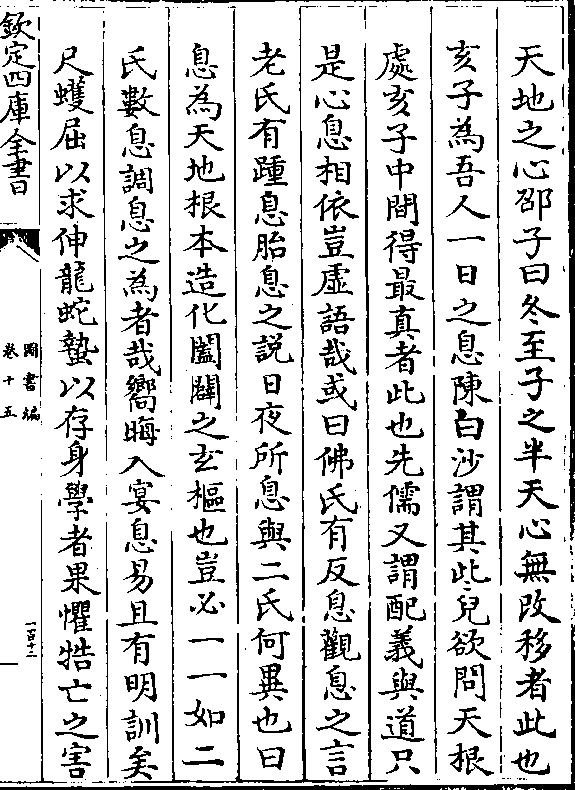 天地之心邵子曰冬至子之半天心無改移者此也
亥子為吾人一日之息陳白沙謂其此兒欲問天根
處亥子中間得最真者此也先儒又謂配義與道只
是心息相依豈虛語哉或曰佛氏有反息觀息之言
老氏有踵息胎息之說日夜所息與二氏何異也曰
息為天地根本造化闔闢之玄樞也豈必一一如二
氏數息調息之為者哉嚮晦入宴息易且有明訓矣
尺蠖屈以求伸龍蛇蟄以存身學者果懼牿亡之害
欽定四庫全書
圖書編
卷十五
一百十二